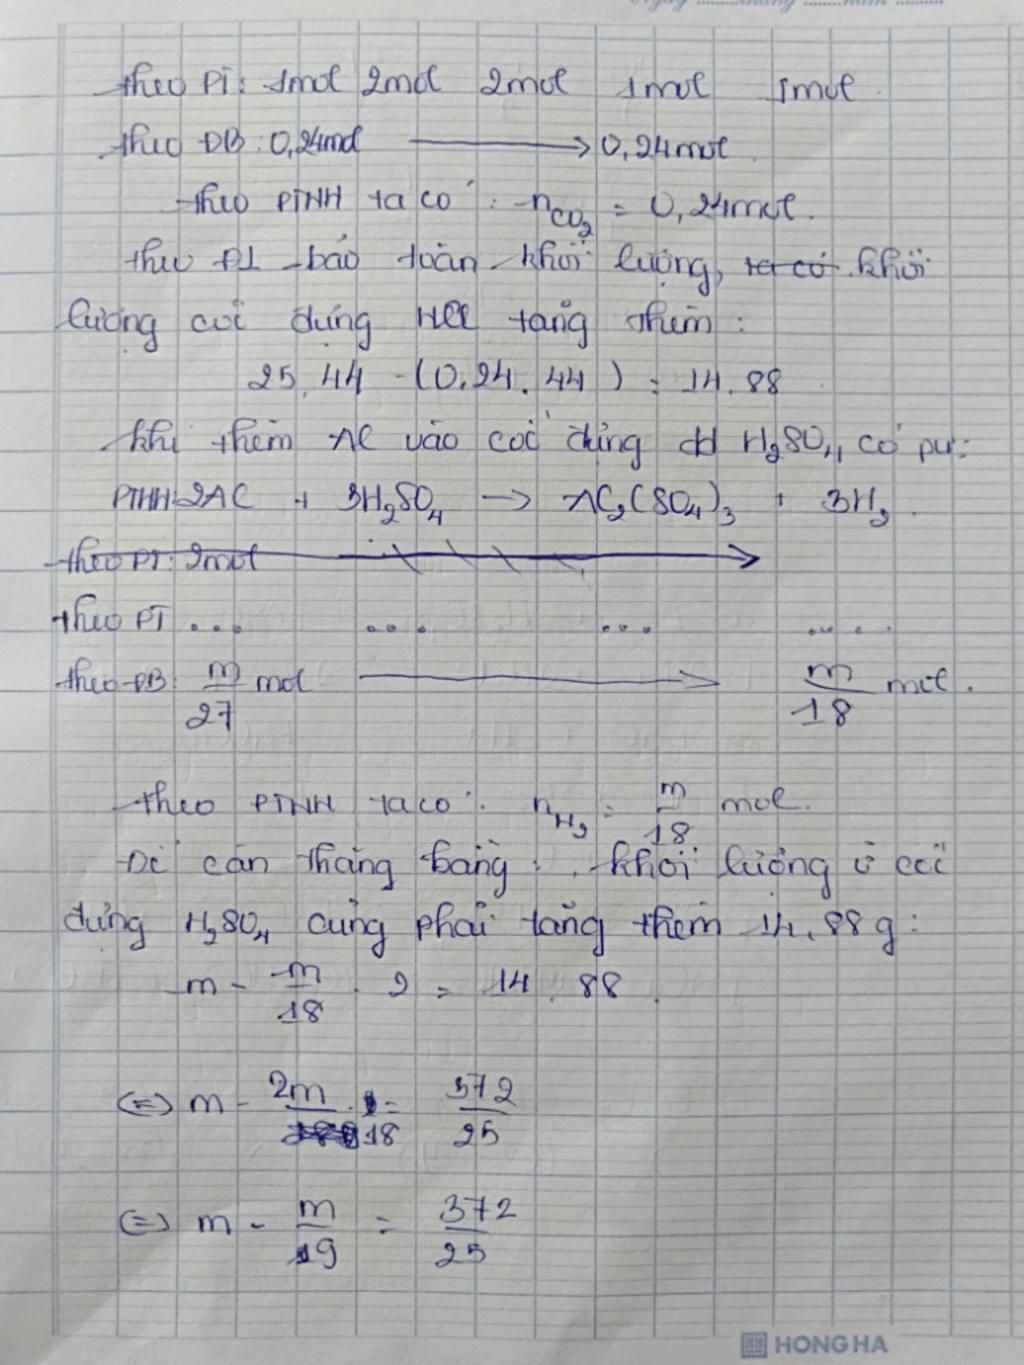 Ngày ........ tháng ........ năm ........
theo PT: 1mol 2mol 2mol 1mol 1mol
theo ĐB: 0,24mol → 0,24mol
theo PTHH ta có: nCO₂ = 0,24mol.
theo ĐL bảo toàn khối lượng, ta có khối
lượng cốc đựng HCl tăng thêm:
25,44 - (0,24.44) = 14,88
khi thêm Al vào cốc đựng dd H₂SO₄ có pư:
PTHH: 2Al + 3H₂SO₄ → Al₂(SO₄)₃ + 3H₂.
theo PT: 2mol →
theo PT ... ... ... ....
theo ĐB: m/27 mol → m/18 mol.
theo PTHH ta có: nH₂ = m/18 mol.
Để cân thăng bằng, khối lượng ở cốc
đựng H₂SO₄ cũng phải tăng thêm 14,88g:
m - m/18 . 2 = 14,88
(=) m - 2m/18 = 372/25
(=) m - m/9 = 372/25
HONG HA